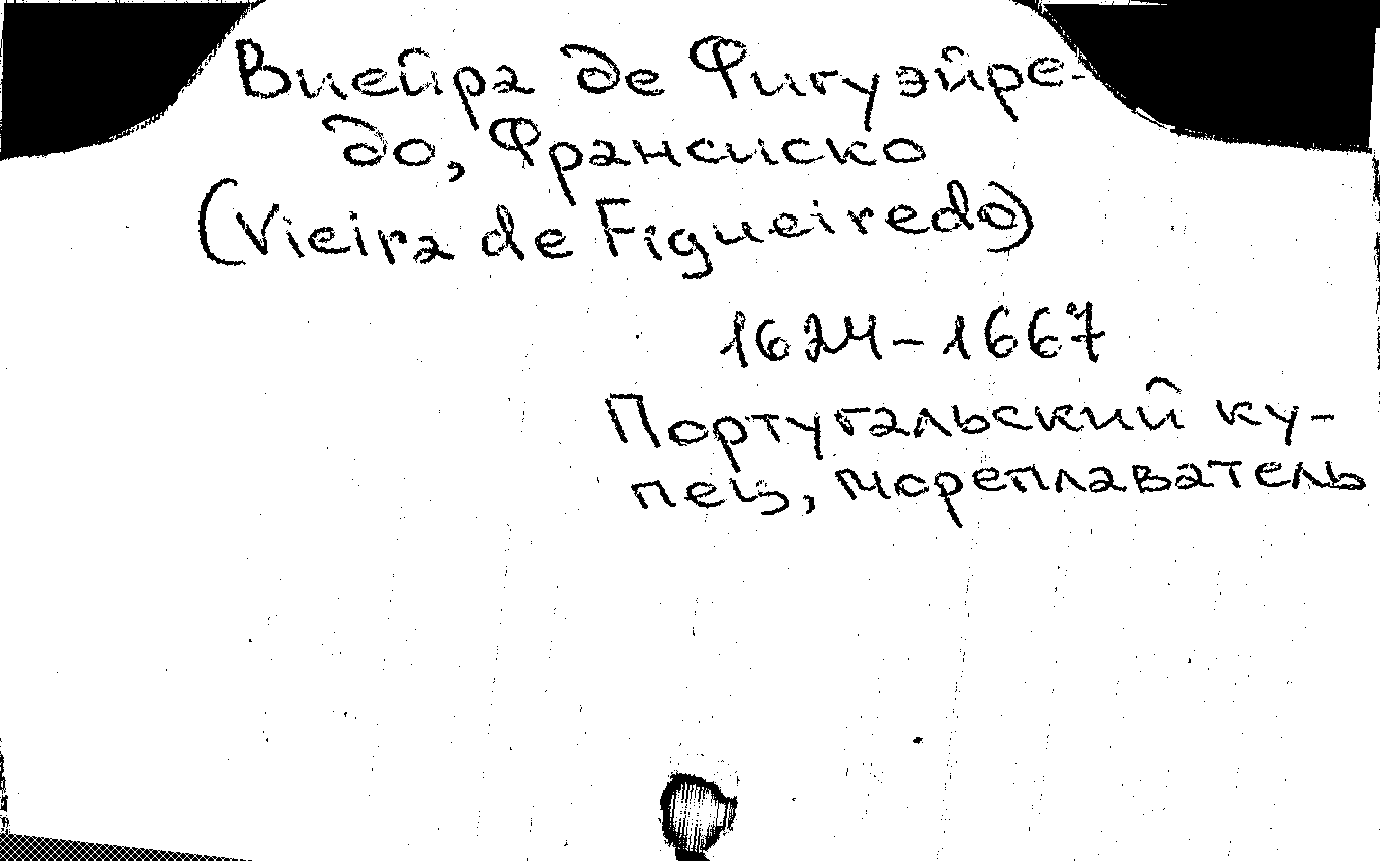 Виейра де Фигуэйре-
до, Франсиско
(Vieira de Figueiredo)
1624-1667
Португальский ку-
пец, мореплаватель